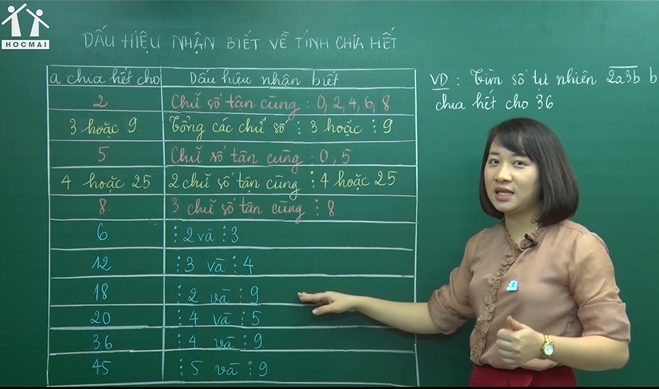 HOCMAI
DẤU HIỆU NHẬN BIẾT VỀ TÍNH CHIA HẾT
a chia hết cho | Dấu hiệu nhận biết
2 | Chữ số tận cùng : 0, 2, 4, 6, 8
3 hoặc 9 | Tổng các chữ số ⋮ 3 hoặc ⋮ 9
5 | Chữ số tận cùng : 0, 5
4 hoặc 25 | 2 chữ số tận cùng ⋮ 4 hoặc 25
8 | 3 chữ số tận cùng ⋮ 8
6 | ⋮ 2 và ⋮ 3
12 | ⋮ 3 và ⋮ 4
18 | ⋮ 2 và ⋮ 9
20 | ⋮ 4 và ⋮ 5
36 | ⋮ 4 và ⋮ 9
45 | ⋮ 5 và ⋮ 9
VD : Tìm số tự nhiên 2a3b b
chia hết cho 36